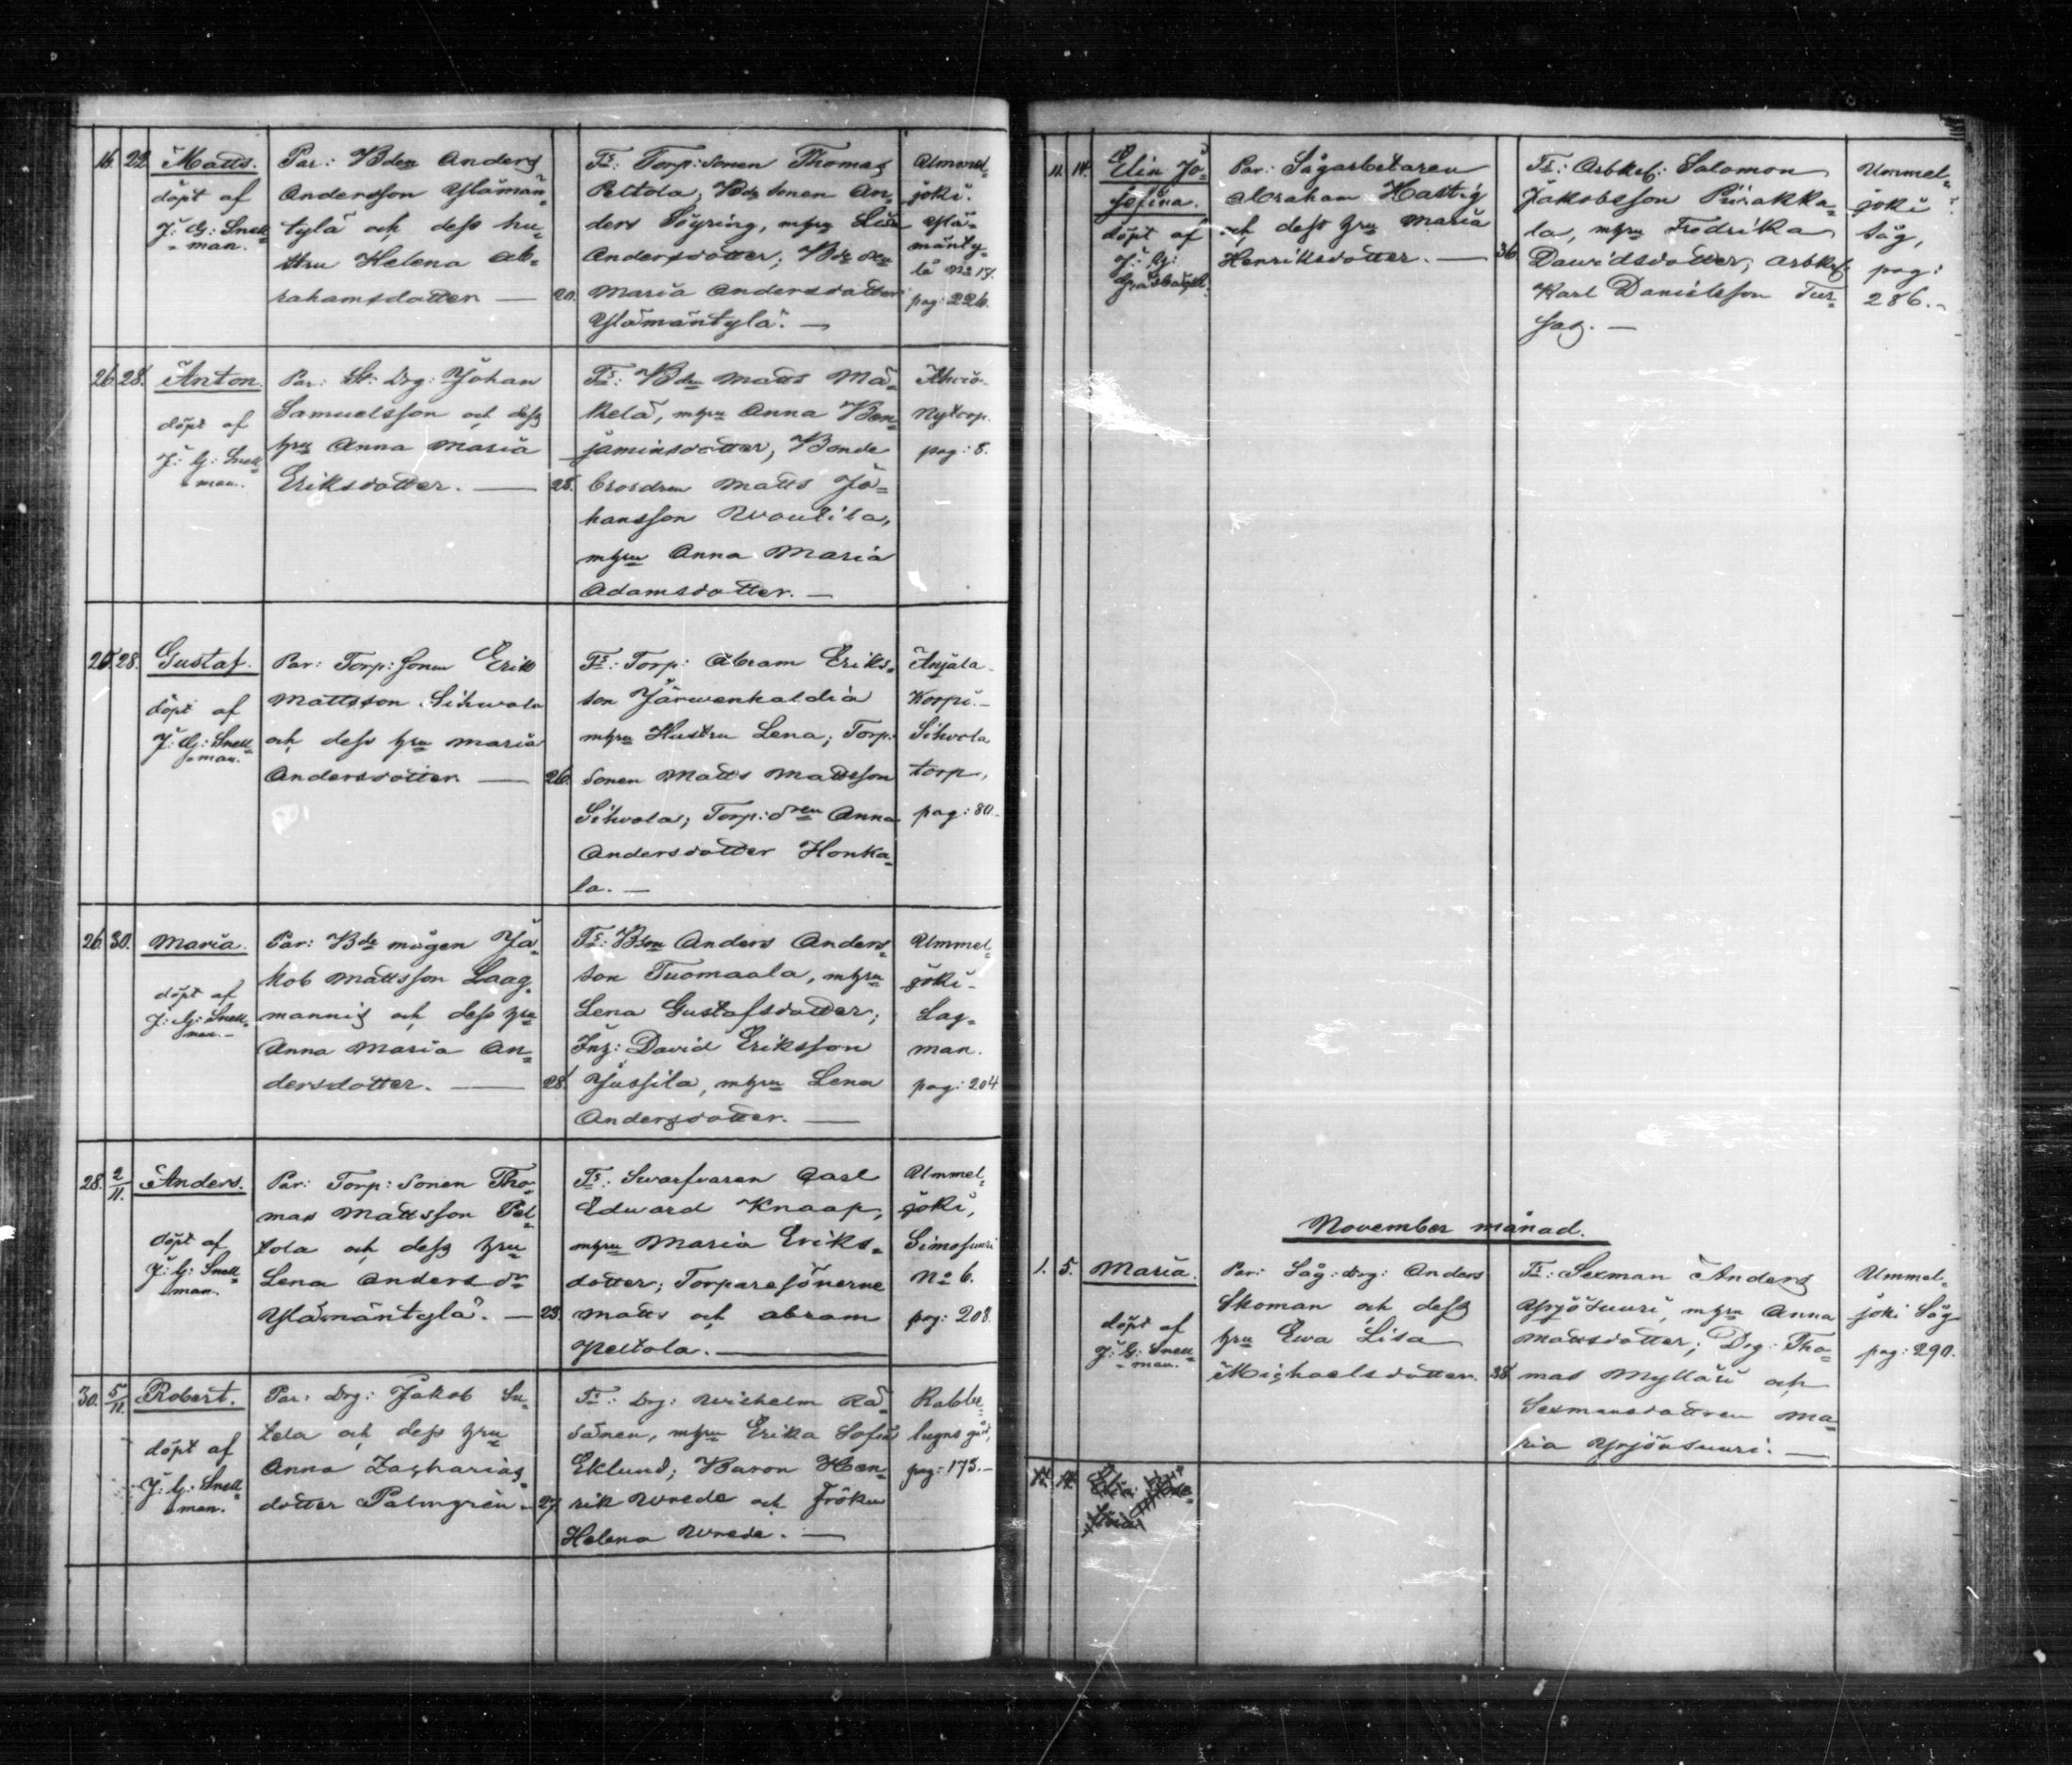 16. 22. Matts.
döpt af
J: G: Snell-
man.
Par: Bden Anders
Andersson Ylämän-
tylä och dess hu-
stru Helena Ab-
rahamsdotter —
20.
Fr: Torp: sonen Thomas
Peltola, Bde sonen An-
ders Töyring, mhru Lisa
Andersdotter; Bde dren
Maria Andersdotter
Ylämäntylä. —
Ummel-
joki.
Ylä-
mänty-
lä No 17.
pag: 226.
26. 28. Anton.
döpt af
J: G: Snell-
man.
Par: St: Drg: Johan
Samuelsson och dess
hru Anna Maria
Eriksdotter. —
28.
Fr: Bden Matts Mä-
kelä, mhru Anna Ben-
jaminsdotter, Bonde
brordren Matts Jo-
hansson Woutila,
mhru Anna Maria
Adamsdotter. —
Ahvio
Nytorp.
pag: 8.
25. 28. Gustaf.
döpt af
J: G: Snell-
man.
Par: Torp: sonen Erik
Mattsson Sihvola
och dess hru Maria
Andersdotter —
26.
Fr: Torp: Abram Eriks-
son Järwenkaldia
mhru Hustru Lena; Torp:
sonen Matts Mattsson
Sihvola; Torp: dren Anna
Andersdotter Honka-
la. —
Anjala
Korpi. —
Sihvola
torp,
pag: 80. —
26. 30. Maria.
döpt af
J: G: Snell-
man. —
Par: Bde mågen Ja-
kob Mattsson Laag-
mannis och dess hru
Anna Maria An-
dersdotter. —
28.
Fr: Bson Anders Anders-
son Tuomaala, mhru
Lena Gustafsdotter;
Inh: David Eriksson
Jussila, mhru Lena
Andersdotter. —
Ummel-
joki —
Lag-
man.
pag: 204
28. 2/11. Anders.
döpt af
J: G: Snell-
man.
Par: Torp: Sonen Tho-
mas Mattsson Pel-
tola och dess hru
Lena Anders dr
Ylämäntylä. —
23.
Fr: Swarfvaren Carl
Edward Knaap,
mhru Maria Eriks-
dotter; Torparesönerne
Matts och Abram
Peltola. —
Ummel-
joki,
Simosuuri
No 6.
pag: 208.
30. 5/11. Robert.
döpt af
J: G: Snell-
man.
Par: Drg: Jakob Su-
tela och dess hru
Anna Zacharias-
dotter Palmgren —
27.
Fr: Drg: Wilhelm Rä-
sänen, mhru Erika Sofia
Eklund; Baron Hen-
rik Wrede och Fröken
Helena Wrede. —
Rabbe-
lugns gård,
pag: 173. —
11. 14. Elin Jo-
sefina.
döpt af
J: G:
Par: Sågarbetaren
Abraham Hastig
och dess hru Maria
Henriksdotter. —
36.
Fr: Arbkrl: Salomon
Jakobsson Piirakka-
la, mhru Fredrika
Dawidsdotter; Arbkrl
Karl Danielsson Tur-
sas. —
Ummel-
joki
Såg,
pag:
286. —
November månad.
1. 5. Maria.
döpt af
J: G: Snell-
man.
Par: Såg: drg: Anders
Skoman och dess
hru Ewa Lisa
Michaelsdotter.
38.
Fr: Sexman Anders
Yrjösuuri, mhru Anna
Mattsdotter; Drg: Tho-
mas Mylläri och
Sexmansdottren Ma-
ria Yrjönsuuri. —
Ummel-
joki Såg
pag: 290.